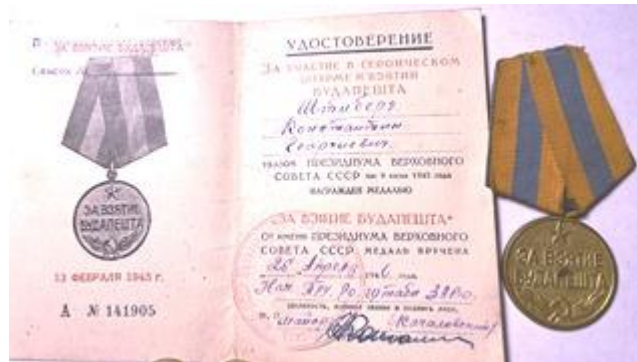 ЗА ВЗЯТИЕ БУДАПЕШТА
ЗА ВЗЯТИЕ
БУДАПЕШТА
13 ФЕВРАЛЯ 1945 г.
А № 141905
УДОСТОВЕРЕНИЕ
ЗА УЧАСТИЕ В ГЕРОИЧЕСКОМ
ШТУРМЕ И ВЗЯТИИ
БУДАПЕШТА
Константин
УКАЗОМ ПРЕЗИДИУМА ВЕРХОВНОГО
СОВЕТА СССР от 9 июня 1945 года
НАГРАЖДЕН МЕДАЛЬЮ
"ЗА ВЗЯТИЕ БУДАПЕШТА"
От имени ПРЕЗИДИУМА ВЕРХОВНОГО
СОВЕТА СССР МЕДАЛЬ ВРУЧЕНА
26 Апреля 1946 года
майор
ЗА ВЗЯТИЕ
БУДАПЕШТА